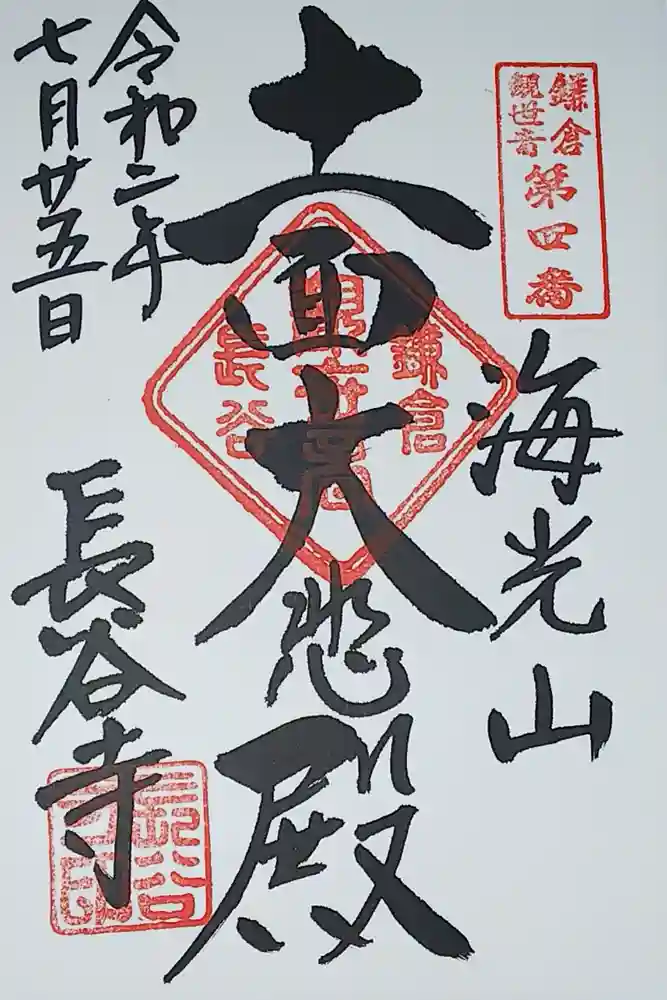 鎌倉
観世音
第四番
海光山
十一面大悲殿
鎌倉
観世音
長谷
令和二年
七月廿五日
長谷寺